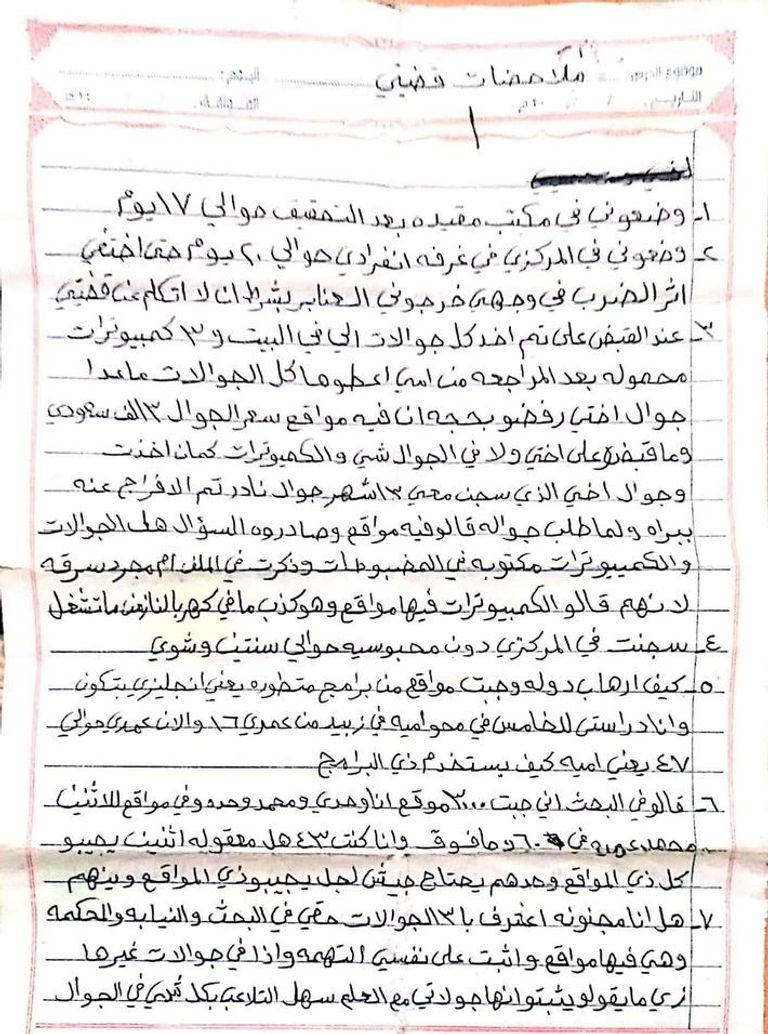 موضوع الدرس ملاحضات قضيتي اليوم:
التاريخ
١
١- وضعوني في مكتب مقيده بعد التحقيق حوالي ١٧ يوم
٢- وضعوني في المركزي في غرفه انفرادي حوالي ٢٠ يوم حتى اختفي
اثر الضرب في وجهي خرجوني العنابر بشرط ان لا اتكلم عن قضيتي
٣- عند القبض علي تم اخد كل جوالات الي في البيت و ٣ كمبيوترات
محموله بعد المراجعه من امي اعطوها كل الجوالات ماعدا
جوال اختي رفضو بحجه ان فيه مواقع سعر الجوال ٣ الف سعودي
وما قبضو على اختي ولا في الجوال شي والكمبيوترات كمان اخذت
وجوال اخي الذي سجن معي ٣ اشهر جوال نادر تم الافراج عنه
ببراه ولما طلب جواله قالو فيه مواقع وصادروه السؤال هل الجوالات
والكمبيوترات مكتوبه في المضبوطات وذكرت في الملف ام مجرد سرقه
لانهم قالو الكمبيوترات فيها مواقع وهو كذب ما في كهربا لنا زمن ماتشغل
٤- سجنت في المركزي دون محبوسيه حوالي سنتين وشوي
٥- كيف ارهاب دوله وجبت مواقع من برامج متطوره يعني انجليزي بتكون
وانا دراستي للخامس في محو اميه في زبيد من عمري ١٦ والان عمري حوالي
٤٧ يعني اميه كيف يستخدم ذي البرامج
٦- قالو في البحث اني جبت ٣٠٠٠ موقع انا وحدي ومحمد وحده وفي مواقع للاثنين
محمد عمره في ٦٠ وما فوق وانا كنت ٤٣ هل معقوله اثنين يجيبو
كل ذي المواقع وحدهم يحتاج جيش لجل يجيبو ذي المواقع وينهم
٧- هل انا مجنونه اعترف با ٣ الجوالات حقي في البحث والنيابه والحكمه
وهي فيها مواقع واثبت على نفسي التهمه واذا في جوالات غيرها
زي ما يقولو يثبتو انها جولاتي مع العلم سهل التلاعب بكل شي في الجوال